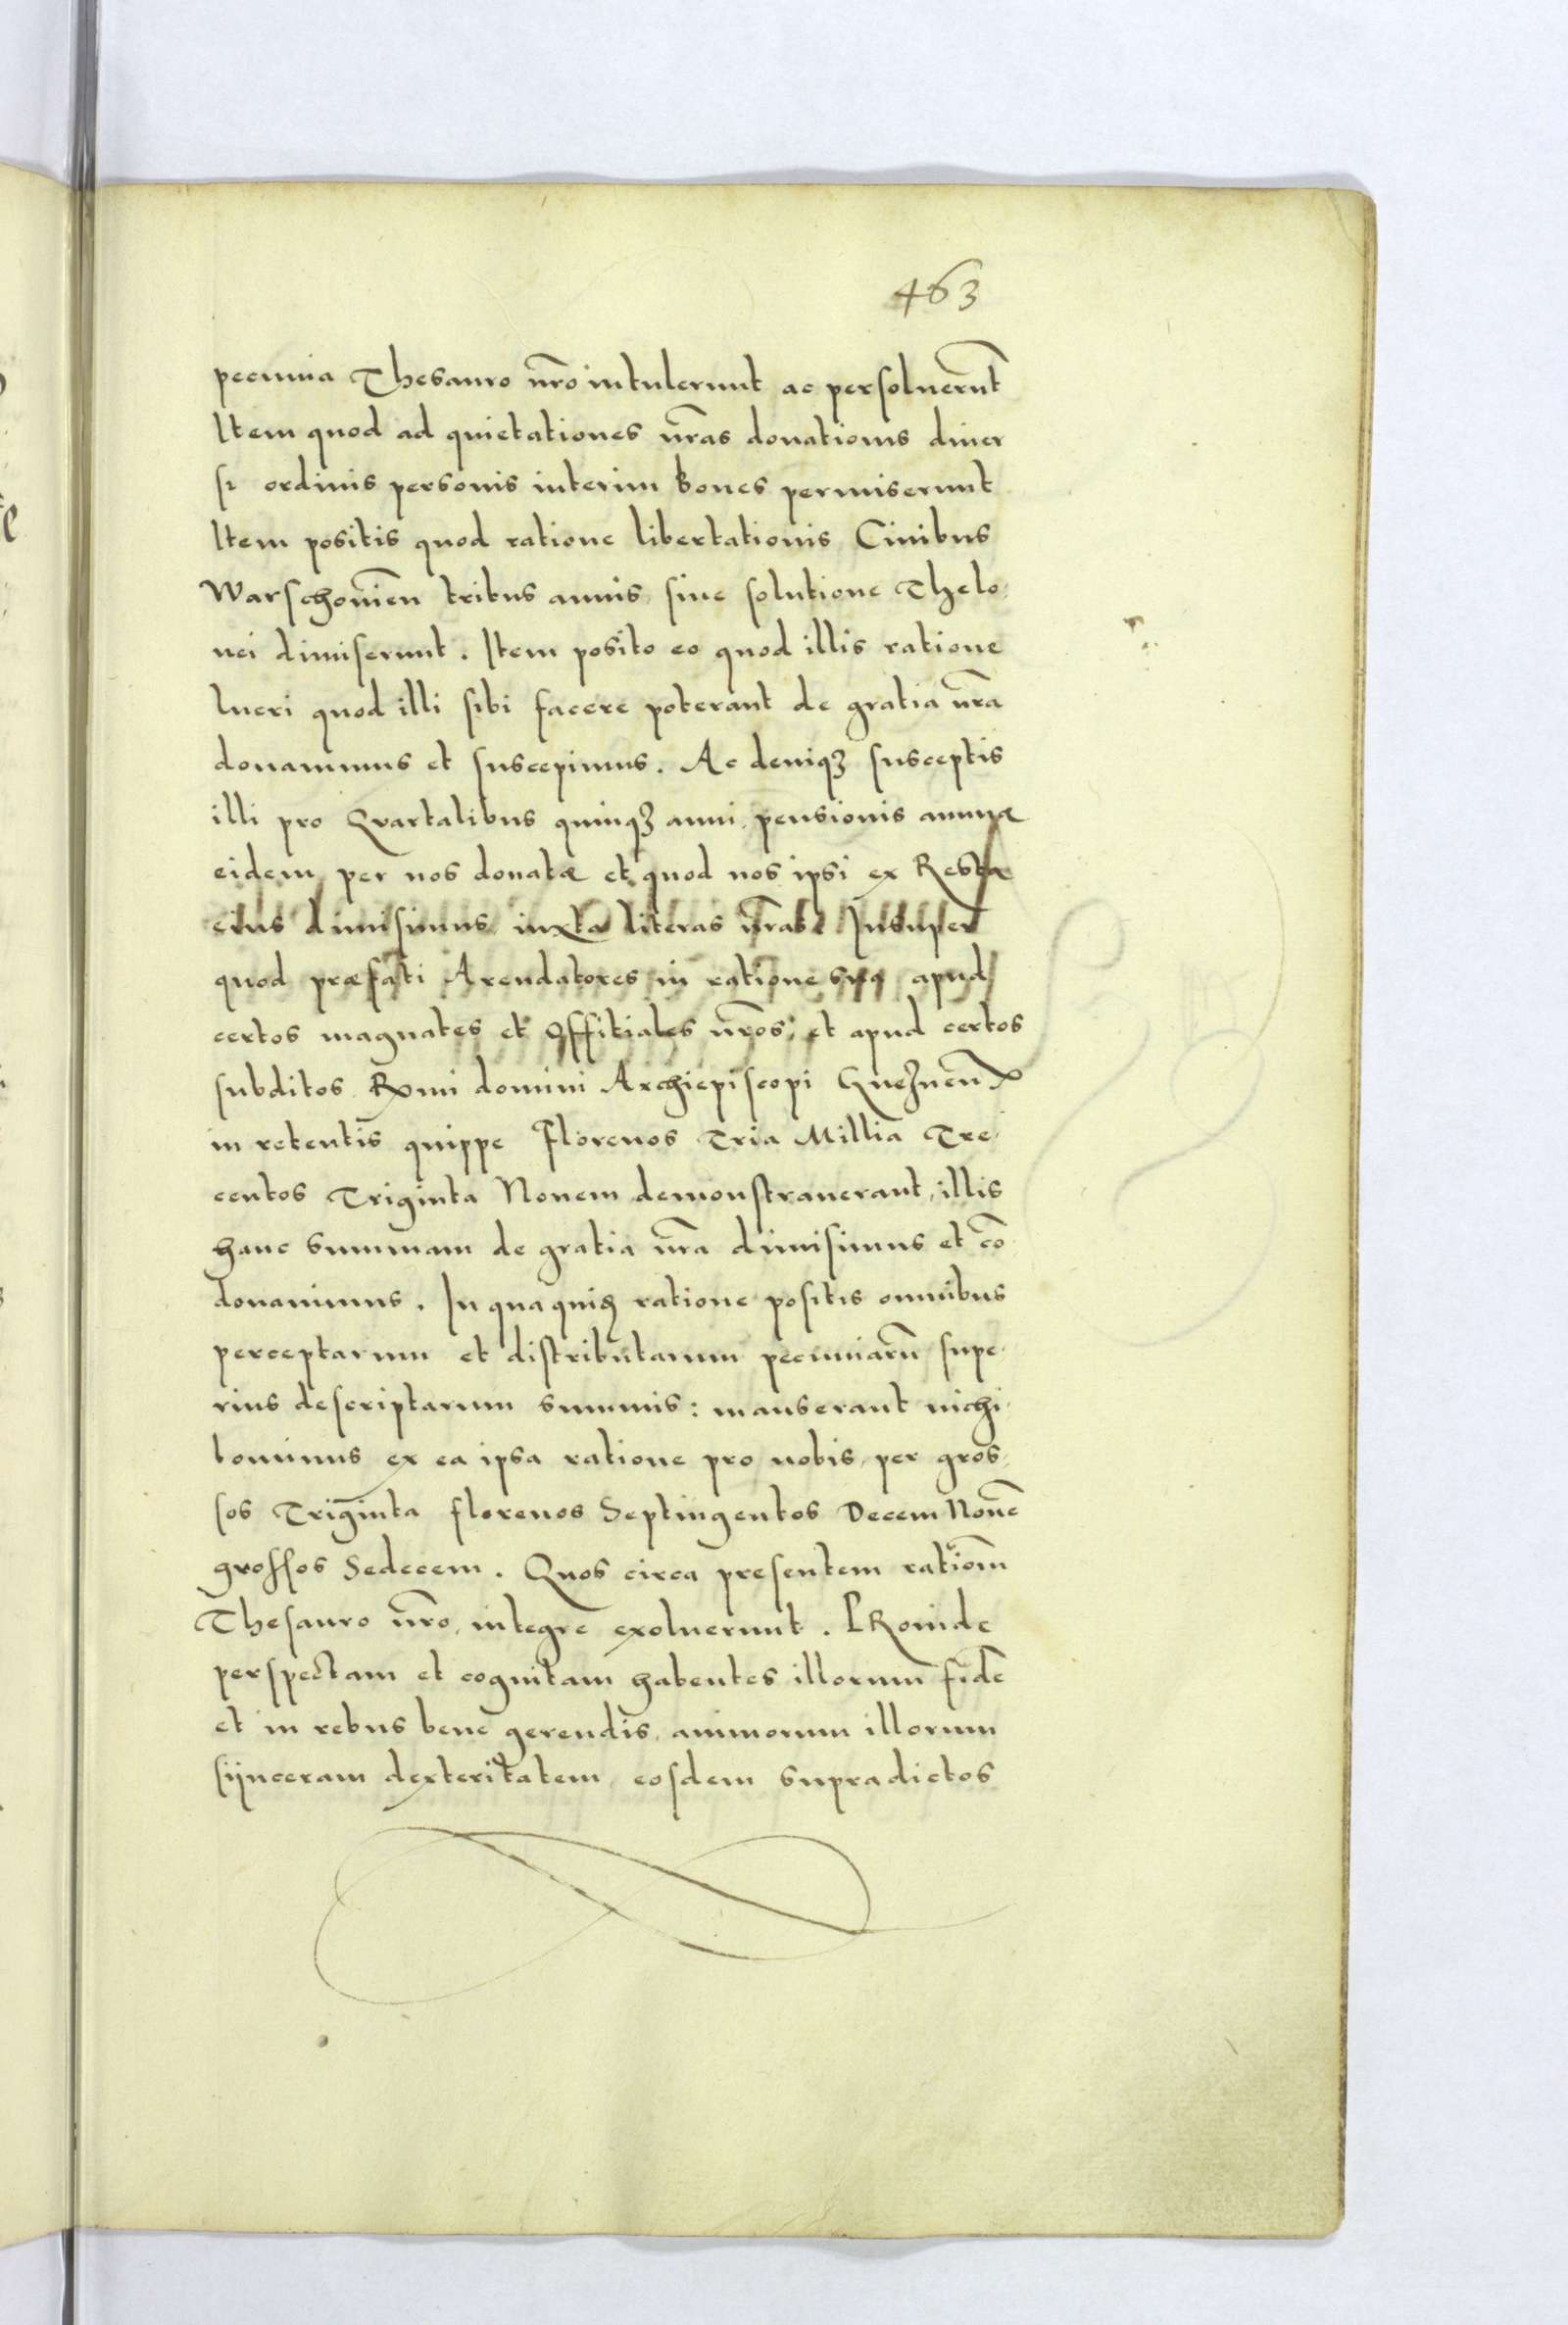 463
pecunia Thesauro nr̃o intulerunt ac persoluerũt
Item quod ad quietationes nr̃as donationis diuer
si ordinis personis interim boues permiserunt
Item positis quod ratione libertationis Ciuibus
Warschouieñ tribus annis sine solutione Thelo
nei dimiserunt. Item posito eo quod illis ratione
lucri quod illi sibi facere poterant de gratia nr̃a
donauimus et suscepimus. Ac deniqȝ susceptis
illi pro Quartalibus quinqȝ anni pensionis annuæ
eidem per nos donatæ et quod nos ipsi ex Resta
eius dimisimus iuxta literas nr̃as Insuper
quod præfati Arendatores in ratione sua apud
certos magnates et Offitiales nr̃os et apud certos
subditos Rx̃mi domini Archiepiscopi Gneznen̄
in retentis quippe Florenos Tria Millia Tre
centos Triginta Nouem demonstrauerant, illis
hanc summam de gratia nr̃a dimisimus et cõ
donauimus. In qua quidem ratione positis omnibus
perceptarum et distributarum pecuniarũ supe
rius descriptarum summis: manserant nichi
lominus ex ea ipsa ratione pro nobis per gros
sos Triginta florenos Septingentos Decem Nouẽ
grossos Sedecem. Quos circa presentem rationẽ
Thesauro nr̃o integre exoluerunt. PRoinde
perspectam et cognitam habentes illorum fidẽ
et in rebus bene gerendis animorum illorum
sijnceram dexteritatem eosdem supradictos